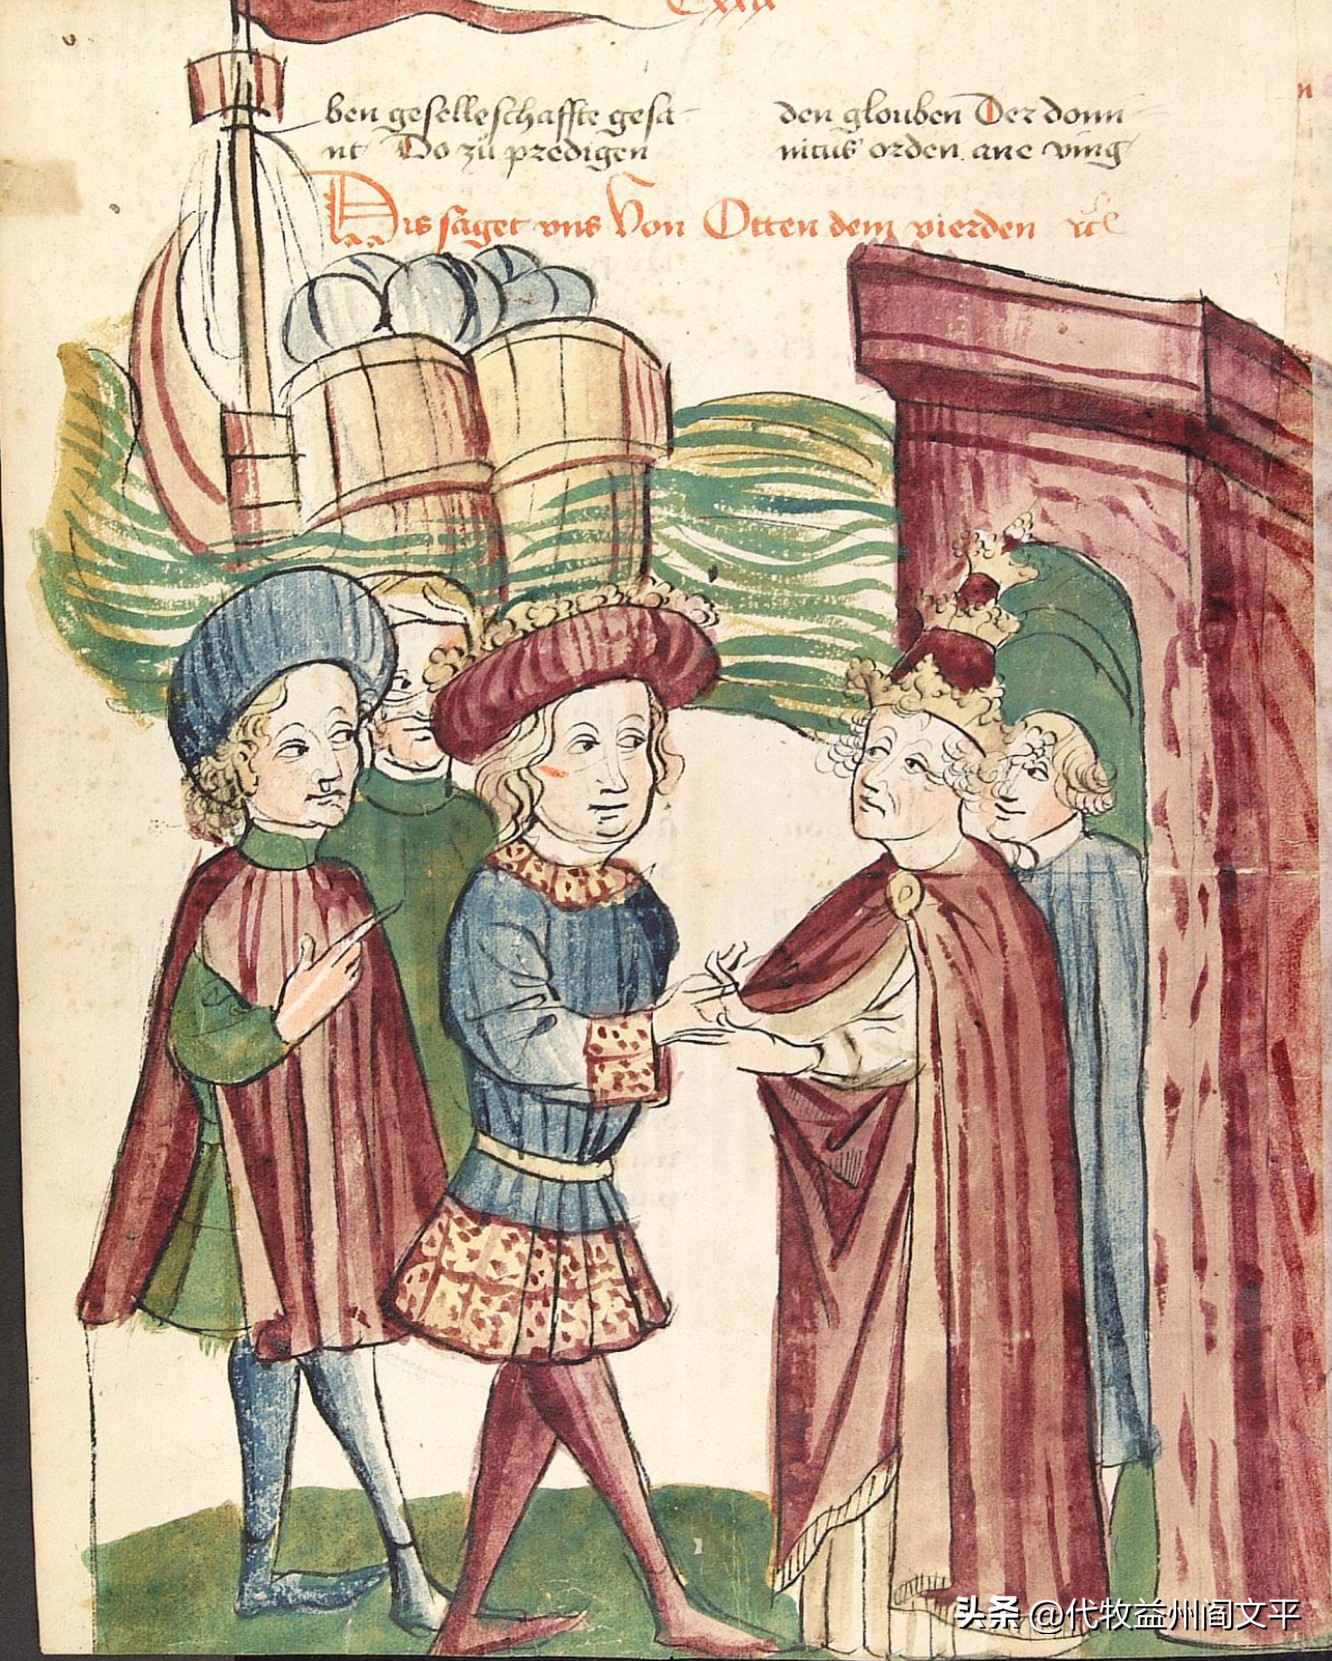 ben geselleschaffte gesa
nt Do zü predigen
den glouben Der domi
nicus orden ane ving
Dis saget vns Von Otten dem vierden
n
头条 @代牧益州阎文平